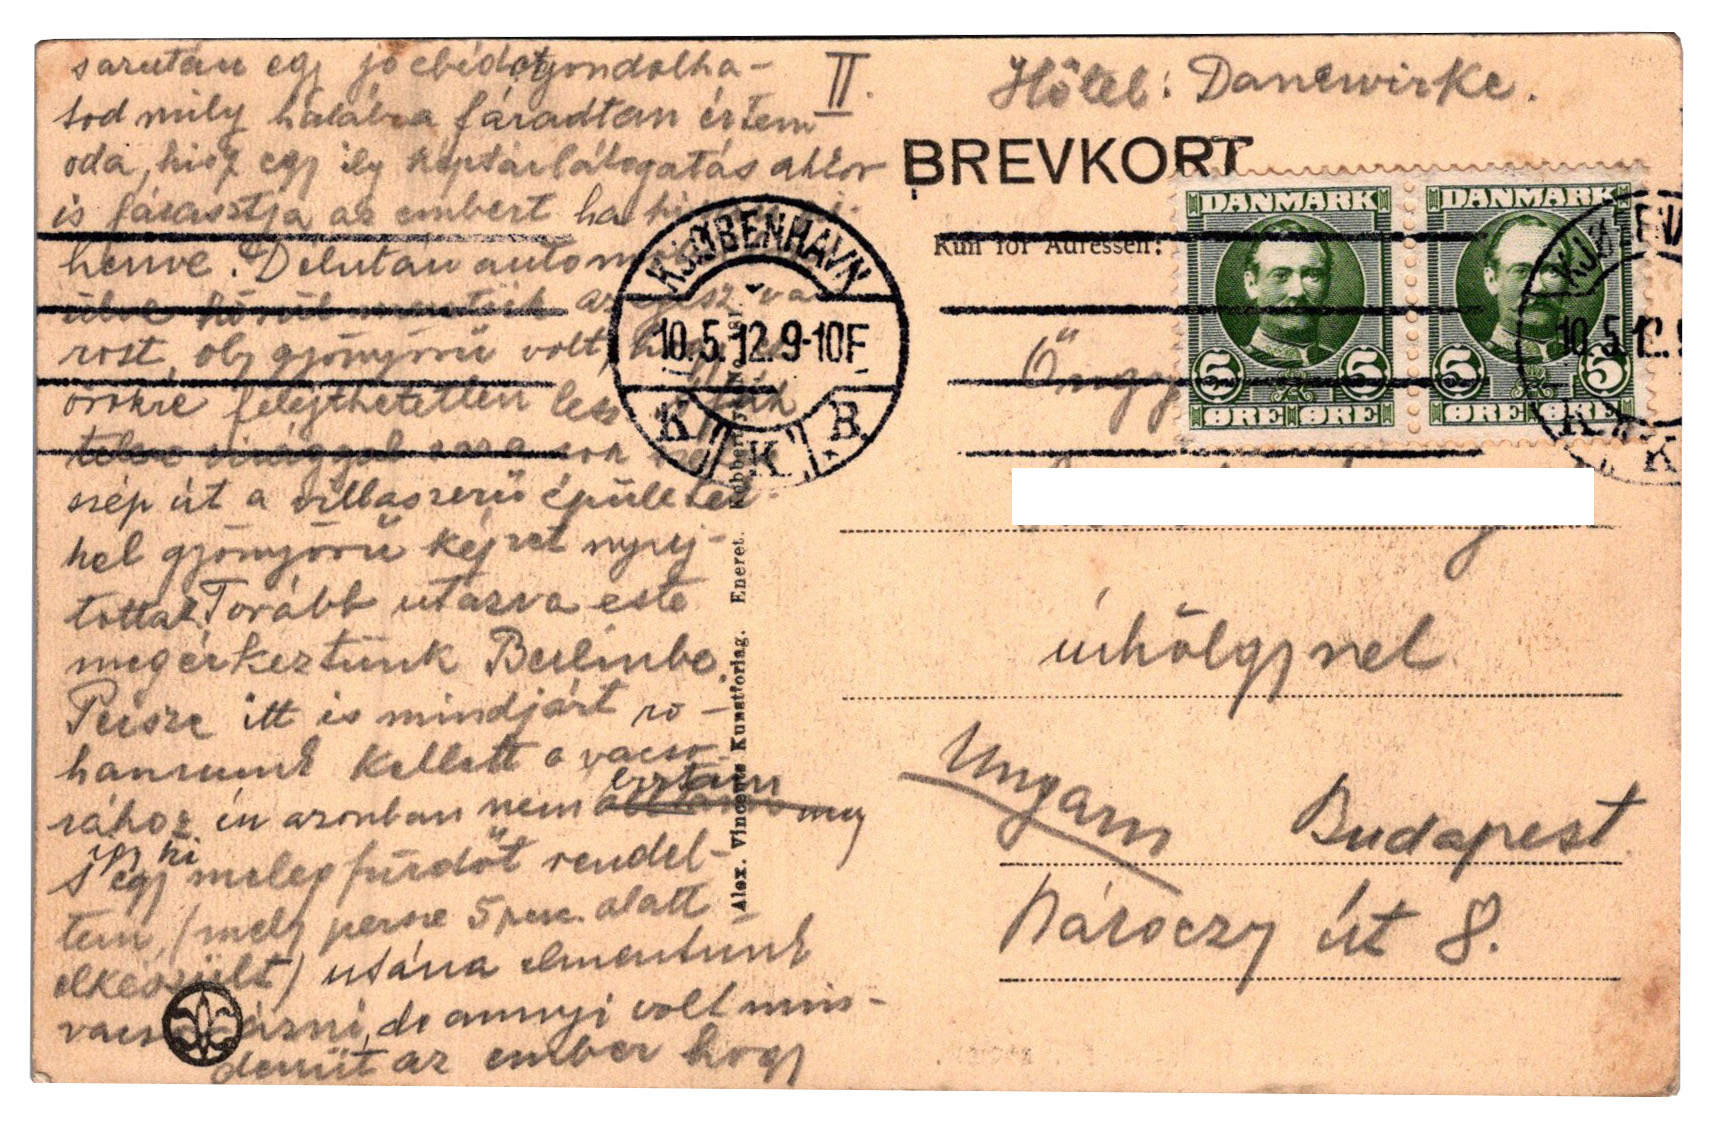 sarután egy jó ebédet gondolha-
tod mily halálra fáradtan értem
oda, hisz egy ily képtárlátogatás akkor
is fárasztja az embert ha ki van pi-
henve. Délután automo
ülve körül mentük az egész va
rost, oly gyönyörü volt,
örökre felejthetetlen lesz
telve virággal
szép út a villaszerü épületek
kel gyönyörü képet nyuj-
tottak. Tovább utazva este
megérkeztünk Berlinbe.
Persze itt is mindjárt ro-
hannunk kellett a vacso-
rához én azonban nem birtam meg
így ki
s egy meleg fürdőt rendel-
tem, (mely persze 5 perc. alatt
elkészült) utána elmentünk
vacsorázni, de annyi volt min-
denütt az ember hogy
II.
Hôtel: Danewirke.
BREVKORT
Kun for Adressen:
DANMARK
5 5
ØRE ØRE
DANMARK
5 5
ØRE ØRE
KJØBENHAVN
10.5.12.9-10F
K K B
KJØBENHAVN
10.5.12.9
K K
Alex. Vincents Kunstforlag. Eneret.
úrhölgynek
Ungarn
Budapest
Báróczy út 8.